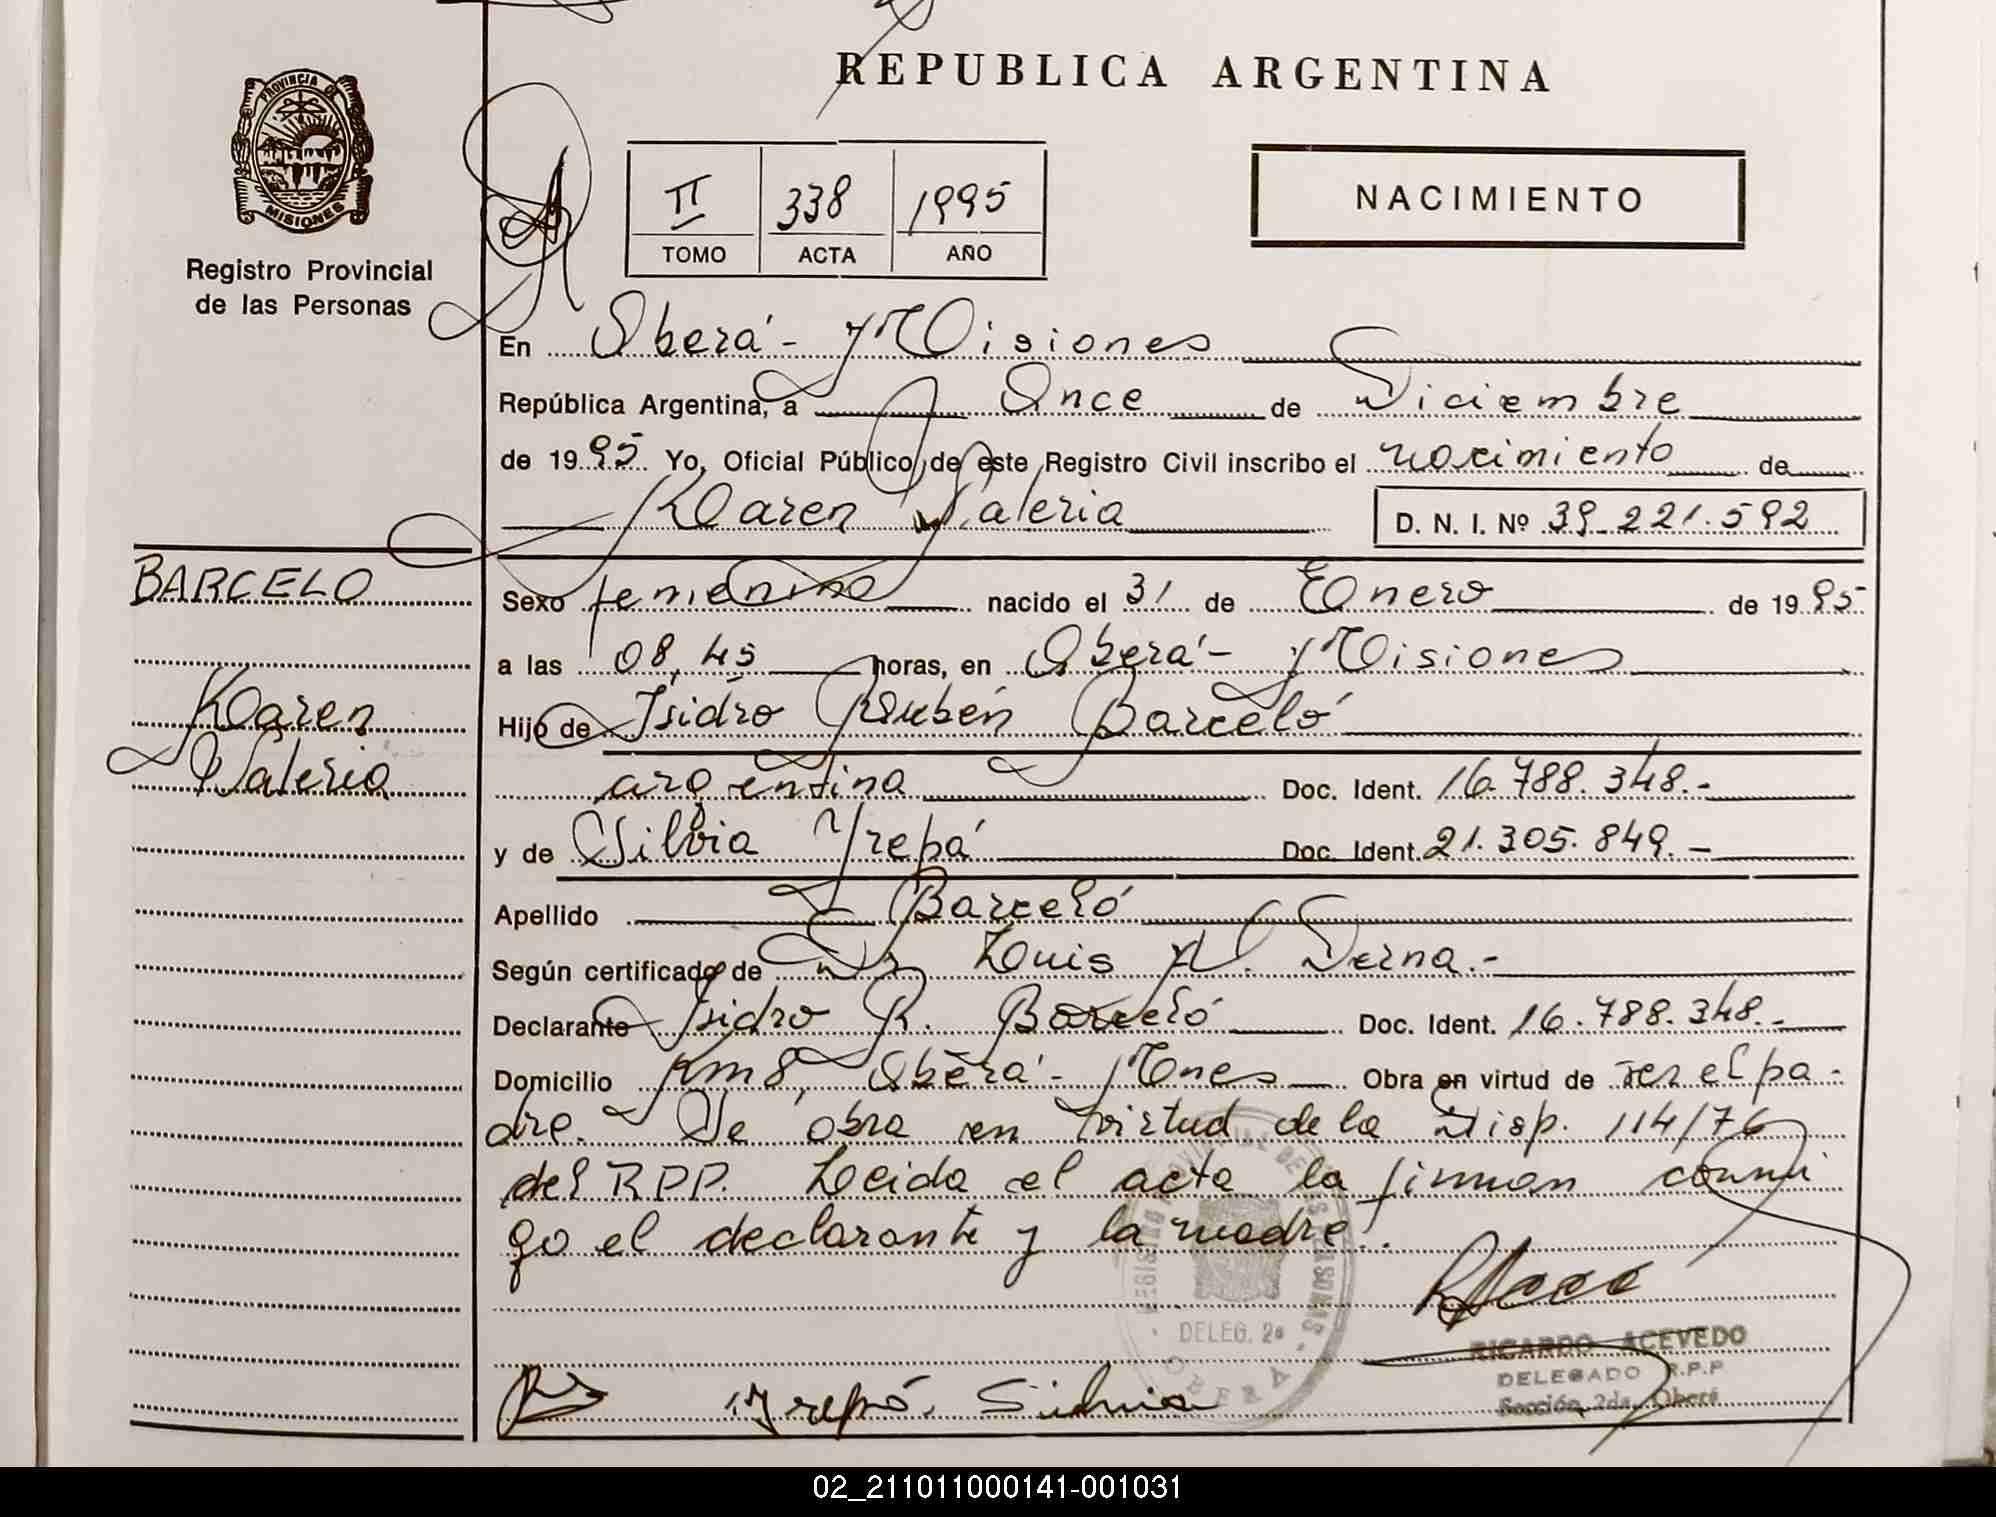 REPUBLICA ARGENTINA
PROVINCIA DE
MISIONES
Registro Provincial
de las Personas
II 338 1995
TOMO ACTA AÑO
NACIMIENTO
En Oberá - Misiones
República Argentina, a Once de Diciembre
de 1995 Yo, Oficial Público de este Registro Civil inscribo el nacimiento de
Karen Valeria D. N. I. Nº 39.221.592
BARCELO
Karen
Valeria
Sexo femenino nacido el 31 de Enero de 1995
a las 08,45 horas, en Oberá - Misiones
Hijo de Isidro Rubén Barceló
argentina Doc. Ident. 16.788.348.-
y de Silvia Doc. Ident. 21.305.849.-
Apellido Barceló
Según certificado de Dr Luis A. Derna.-
Declarante Isidro R. Barceló Doc. Ident. 16.788.348.-
Domicilio Km 8, Oberá - Mnes Obra en virtud de ser el pa-
dre. Se obra en virtud de la Disp. 114/76
del R.P.P. Leida el acta la firman conmi
go el declarante y la madre.
REGISTRO PROVINCIAL DE LAS PERSONAS
DELEG. 2a
OBERA
RICARDO ACEVEDO
DELEGADO R.P.P
Sección 2da. Oberá
Silvia
02_211011000141-001031